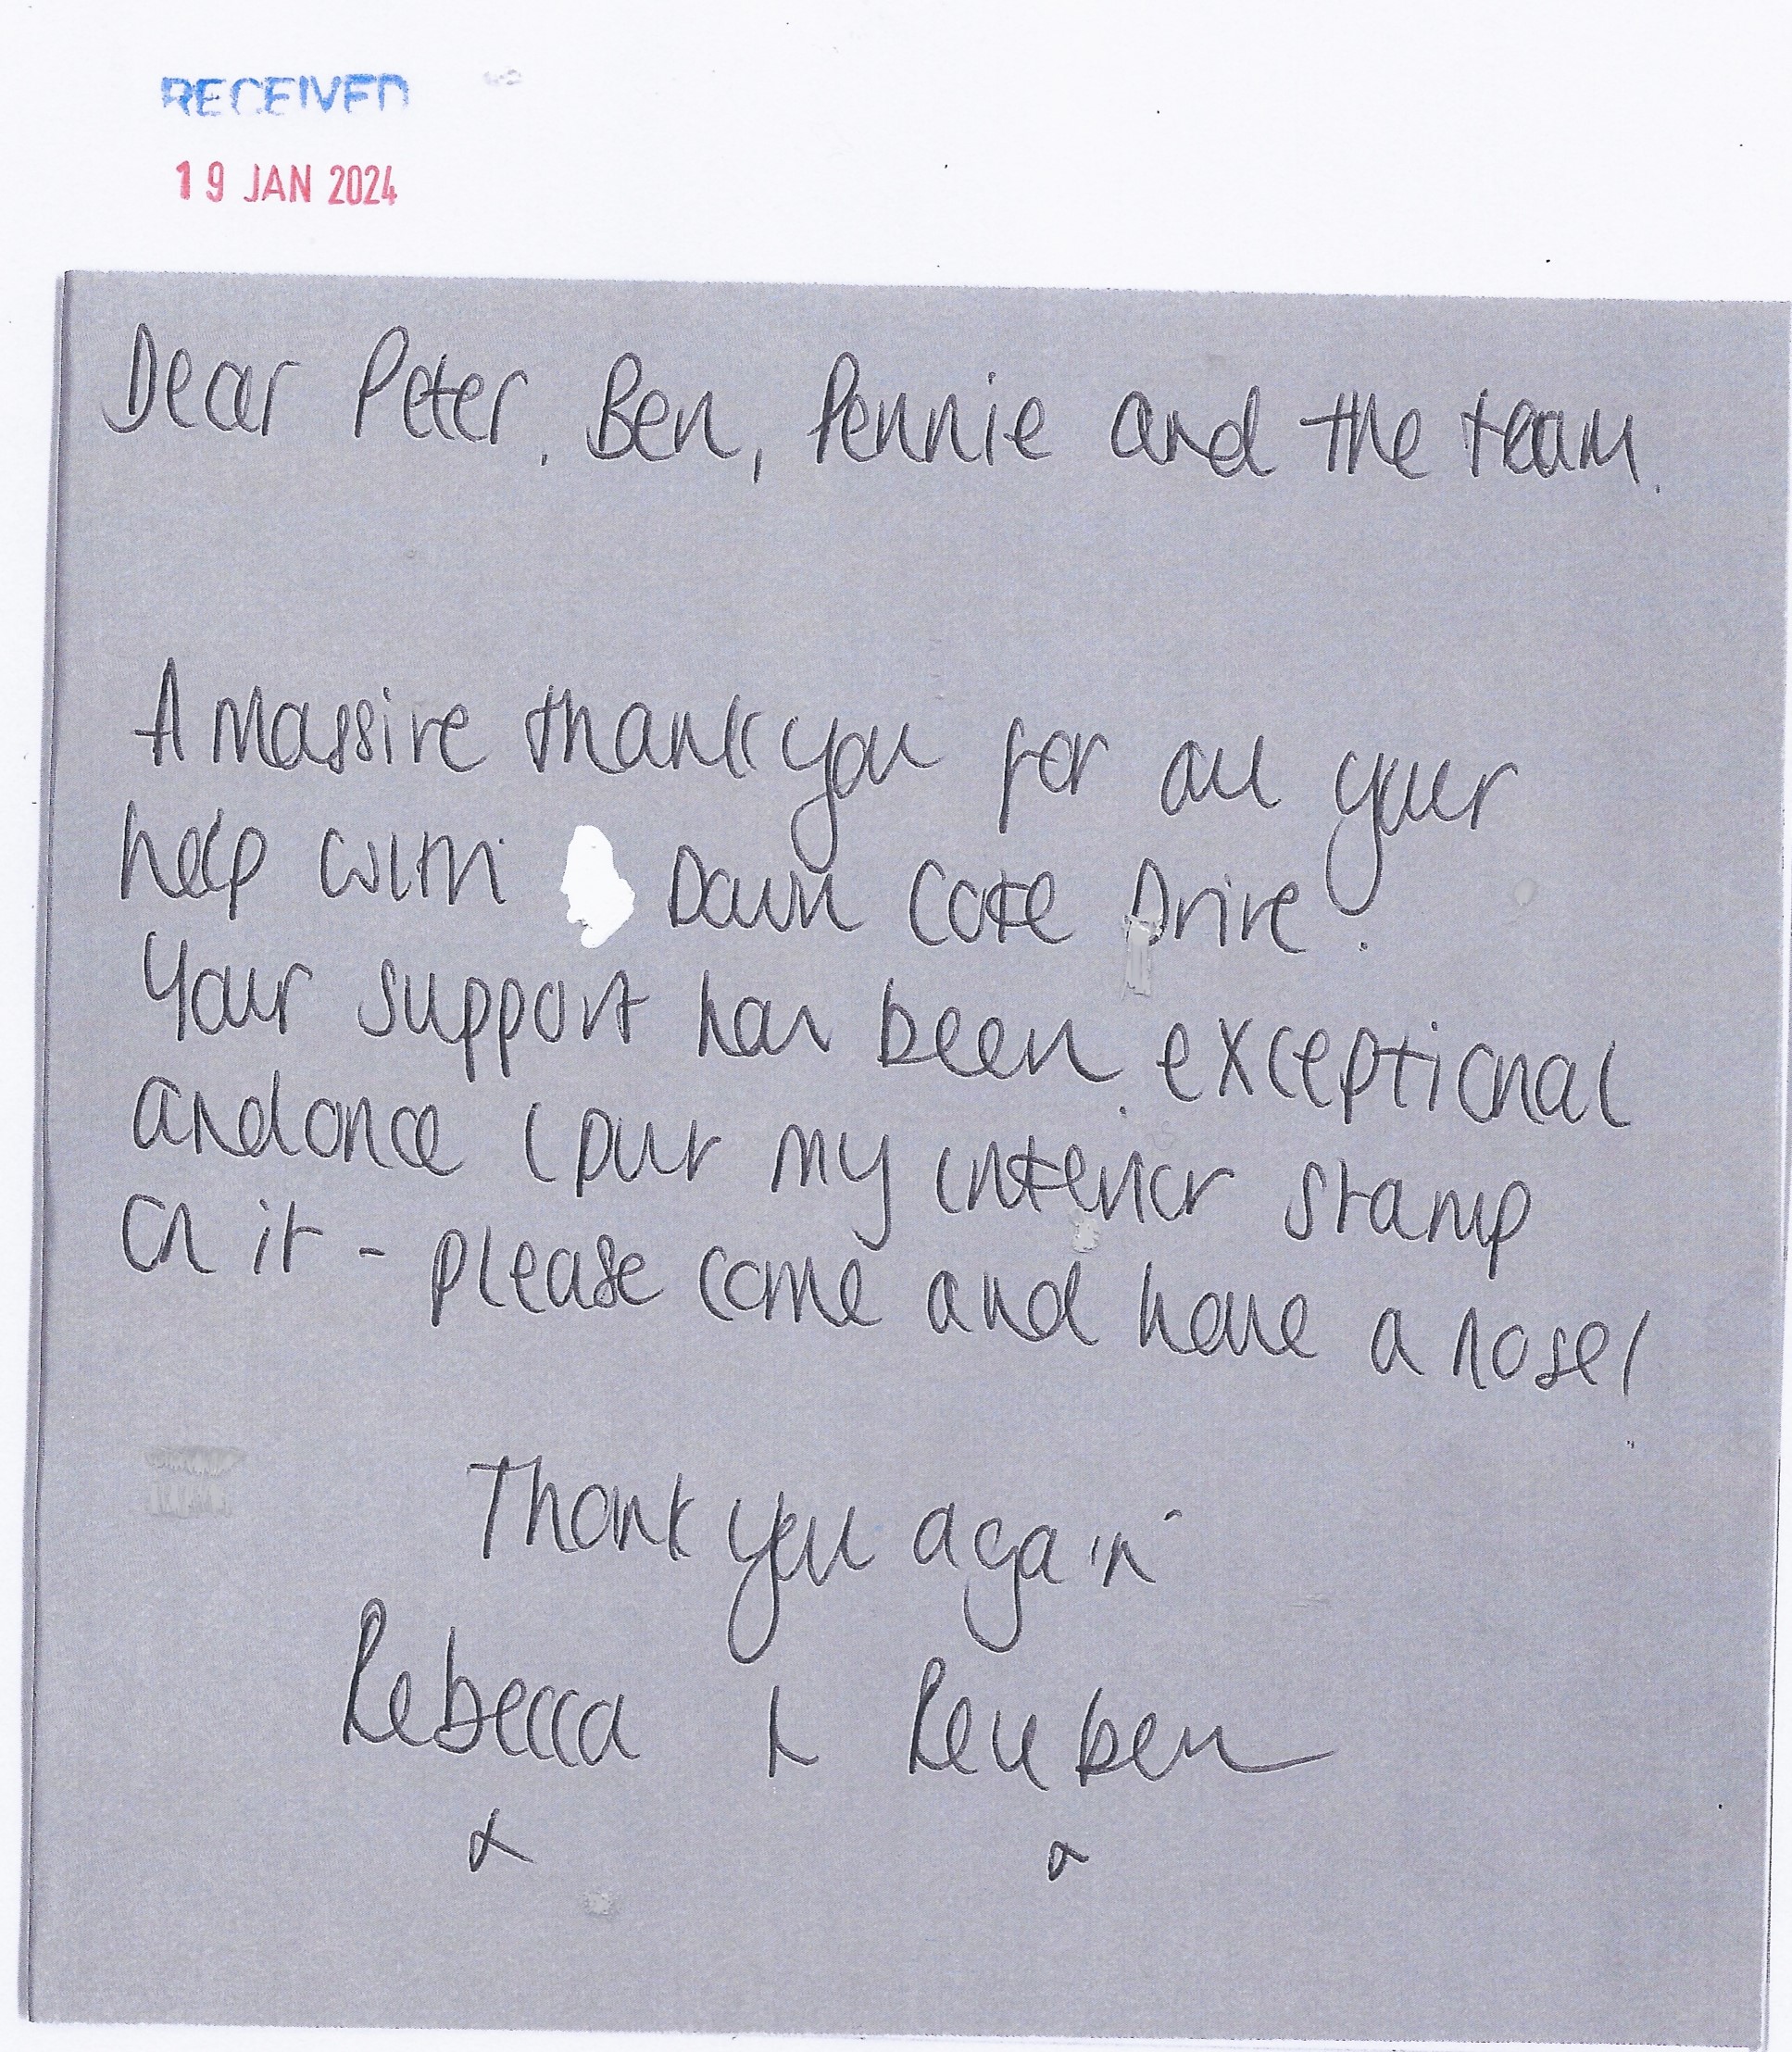 RECEIVED
19 JAN 2024
Dear Peter, Ben, Pennie and the team.
A massive thank you for all your
help with Dawn Cote Drive.
Your support has been exceptional
and once I put my interior stamp
on it - please come and have a nose!
Thank you again
Rebecca & Reuben
x x